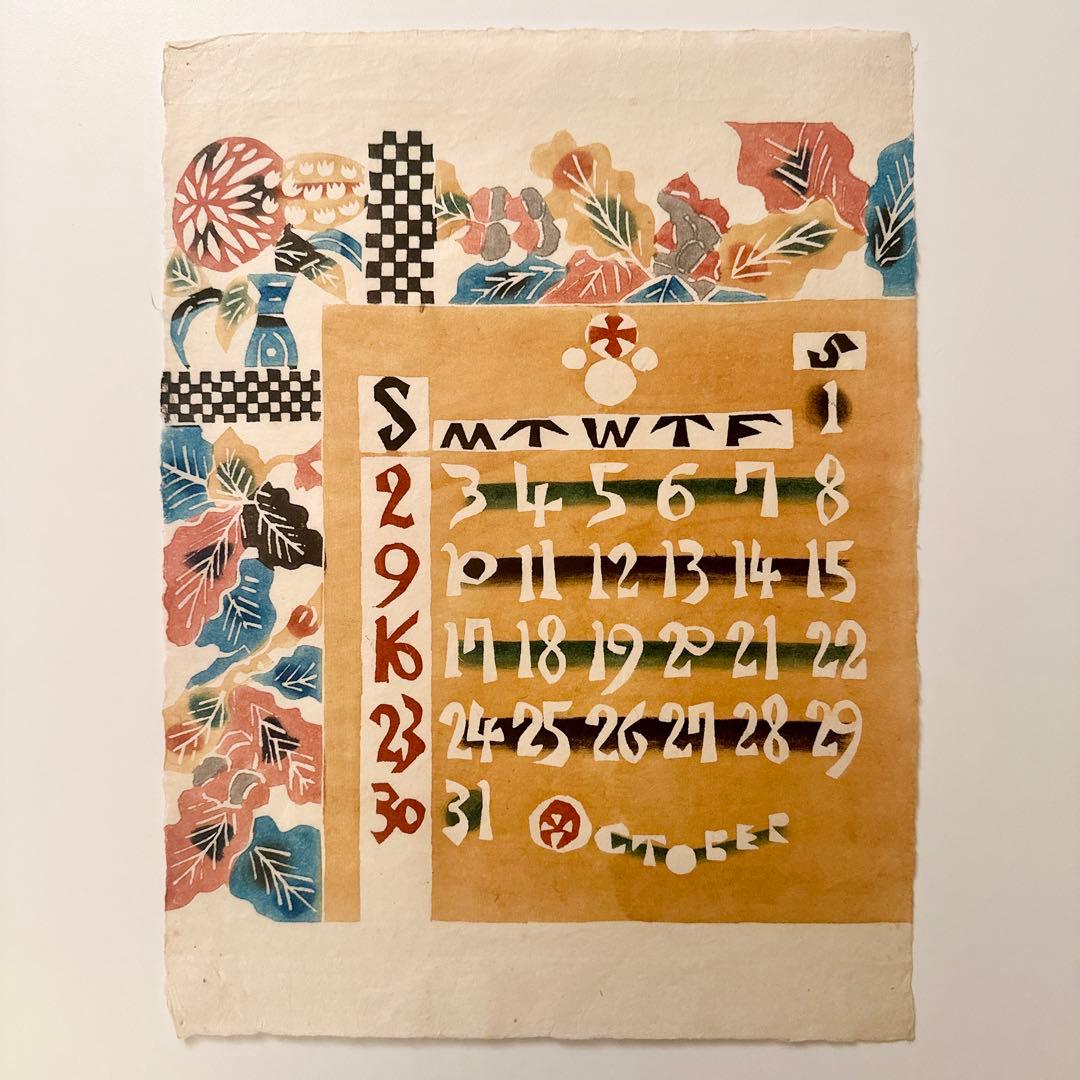 S
1
S M T W T F
2 3 4 5 6 7 8
9 10 11 12 13 14 15
16 17 18 19 20 21 22
23 24 25 26 27 28 29
30 31
OCTOBER